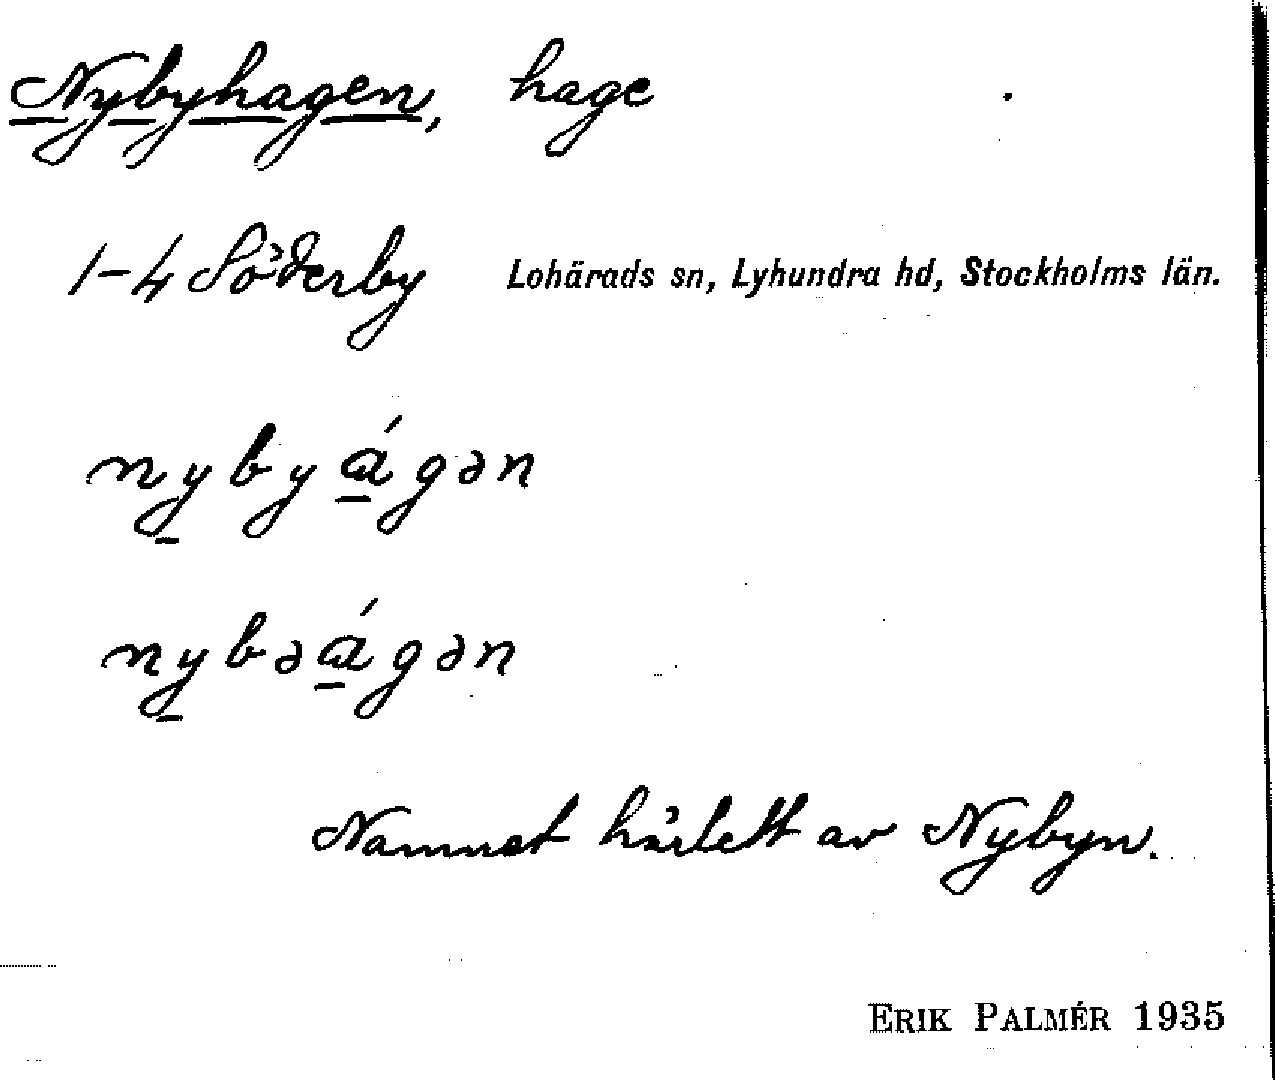 Nybyhagen, hage
1-4 Söderby Lohärads sn, Lyhundra hd, Stockholms län.
nybyágən
nybəágən
Namnet härlett av Nybyn.
ERIK PALMÉR 1935